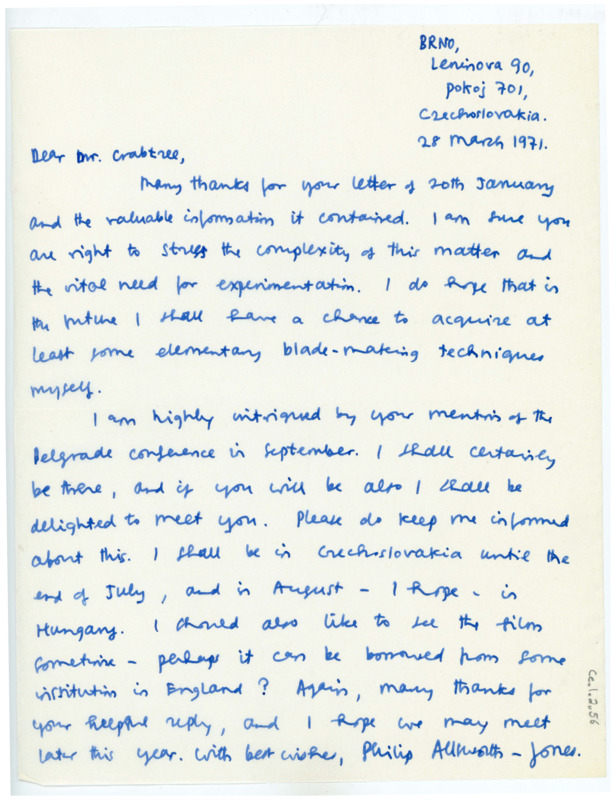 BRNO,
Leninova 90,
Pokoj 701,
Czechoslovakia.
28 March 1971.
Dear Mr. Crabtree,
Many thanks for your letter of 20th January
and the valuable information it contained. I am sure you
are right to stress the complexity of this matter and
the vital need for experimentation. I do hope that in
the future I shall have a chance to acquire at
least some elementary blade-making techniques
myself.
I am highly intrigued by your mention of the
Belgrade conference in September. I shall certainly
be there, and if you will be also I shall be
delighted to meet you. Please do keep me informed
about this. I shall be in Czechoslovakia until the
end of July, and in August - I hope - in
Hungary. I should also like to see the film
sometime - perhaps it can be borrowed from some
institution in England? Again, many thanks for
your helpful reply, and I hope we may meet
later this year. With best wishes, Philip Allsworth-Jones.
Ce.1.2.56